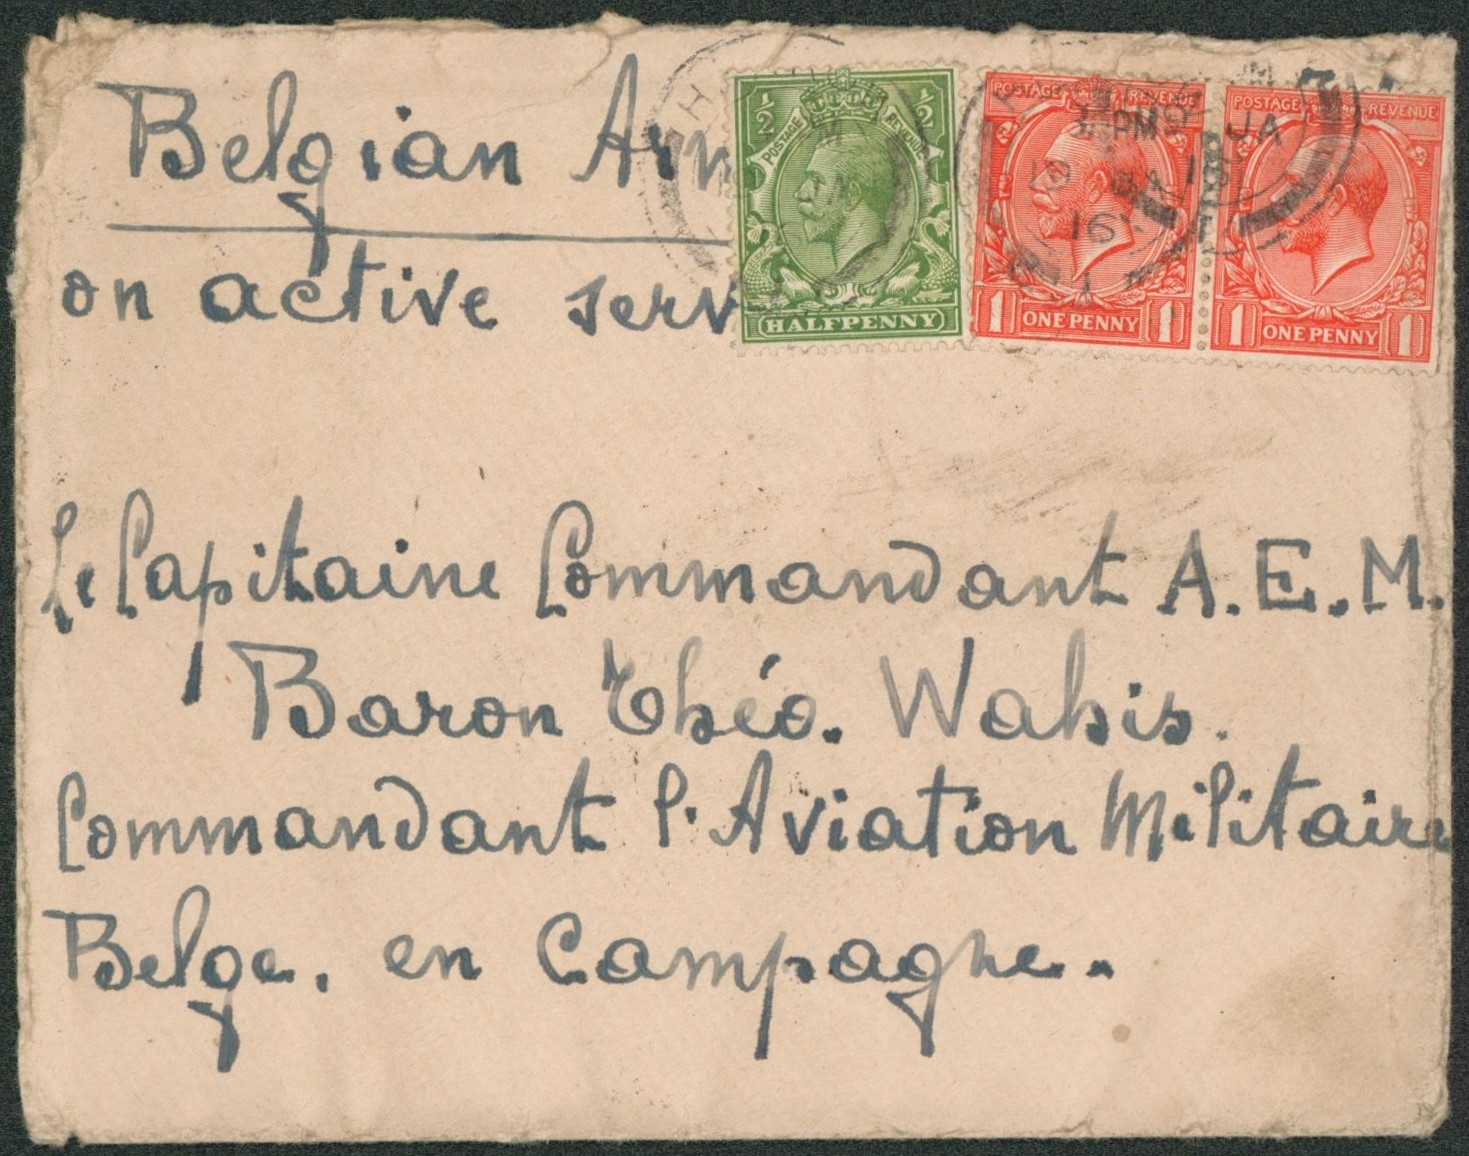 Belgian Arm
on active serv
½ ½
POSTAGE REVENUE
HALFPENNY
POSTAGE REVENUE
1 ONE PENNY 1
POSTAGE REVENUE
1 ONE PENNY 1
PM
JA
16
Le Capitaine Commandant A.E.M.
Baron Théo. Wahis.
Commandant l'Aviation Militaire
Belge. en Campagne.